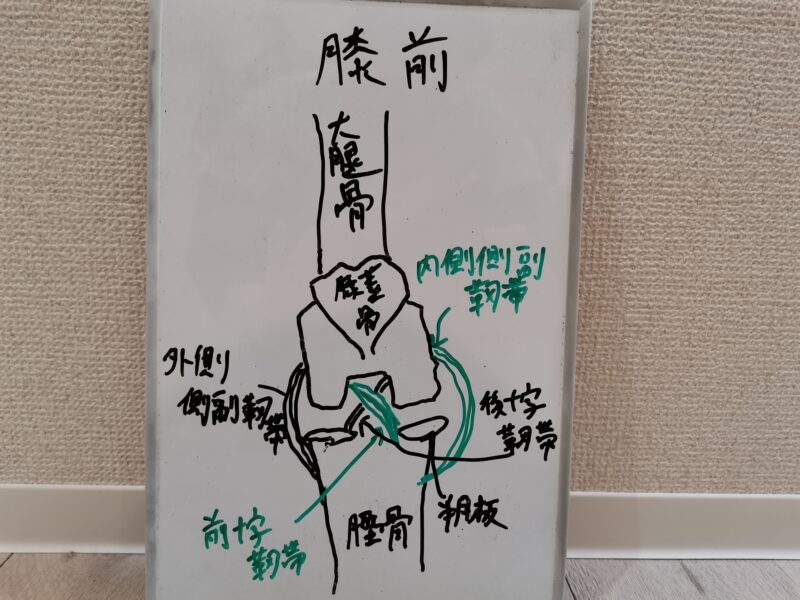 膝前
大腿骨
膝蓋
骨
内側側副
靭帯
外側
側副靭
帯
後十字
靭帯
前十字
靭帯
脛骨
半月板